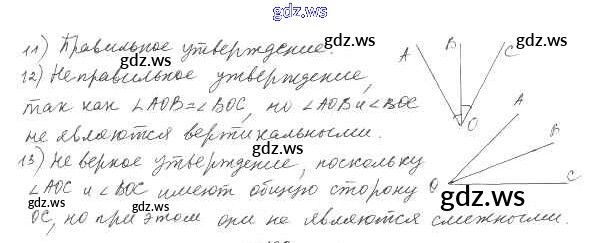 gdz.ws
11) Правильное утверждение.
gdz.ws gdz.ws
12) Неправильное утверждение,
так как ∠AOB=∠BOC, но ∠AOB и ∠BOC
не являются вертикальными.
gdz.ws gdz.ws
13) Неверное утверждение, поскольку
∠AOC и ∠BOC имеют общую сторону
gdz.ws gdz.ws gdz.ws
OC, но при этом они не являются смежными.
gdz.ws
A B C
O
A
B
O C